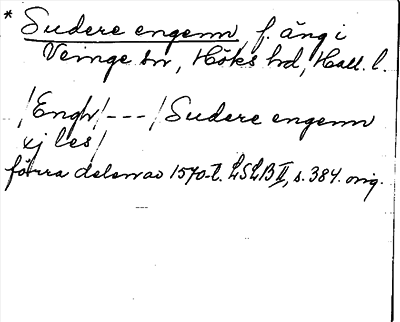 * Sudere engenn, f. äng i
Veinge sn, Höks hd, Hall. l.
/Engh/ --- / Sudere engenn
xj les/
förra delen av 1570-t. LSLB II, s. 384. orig.